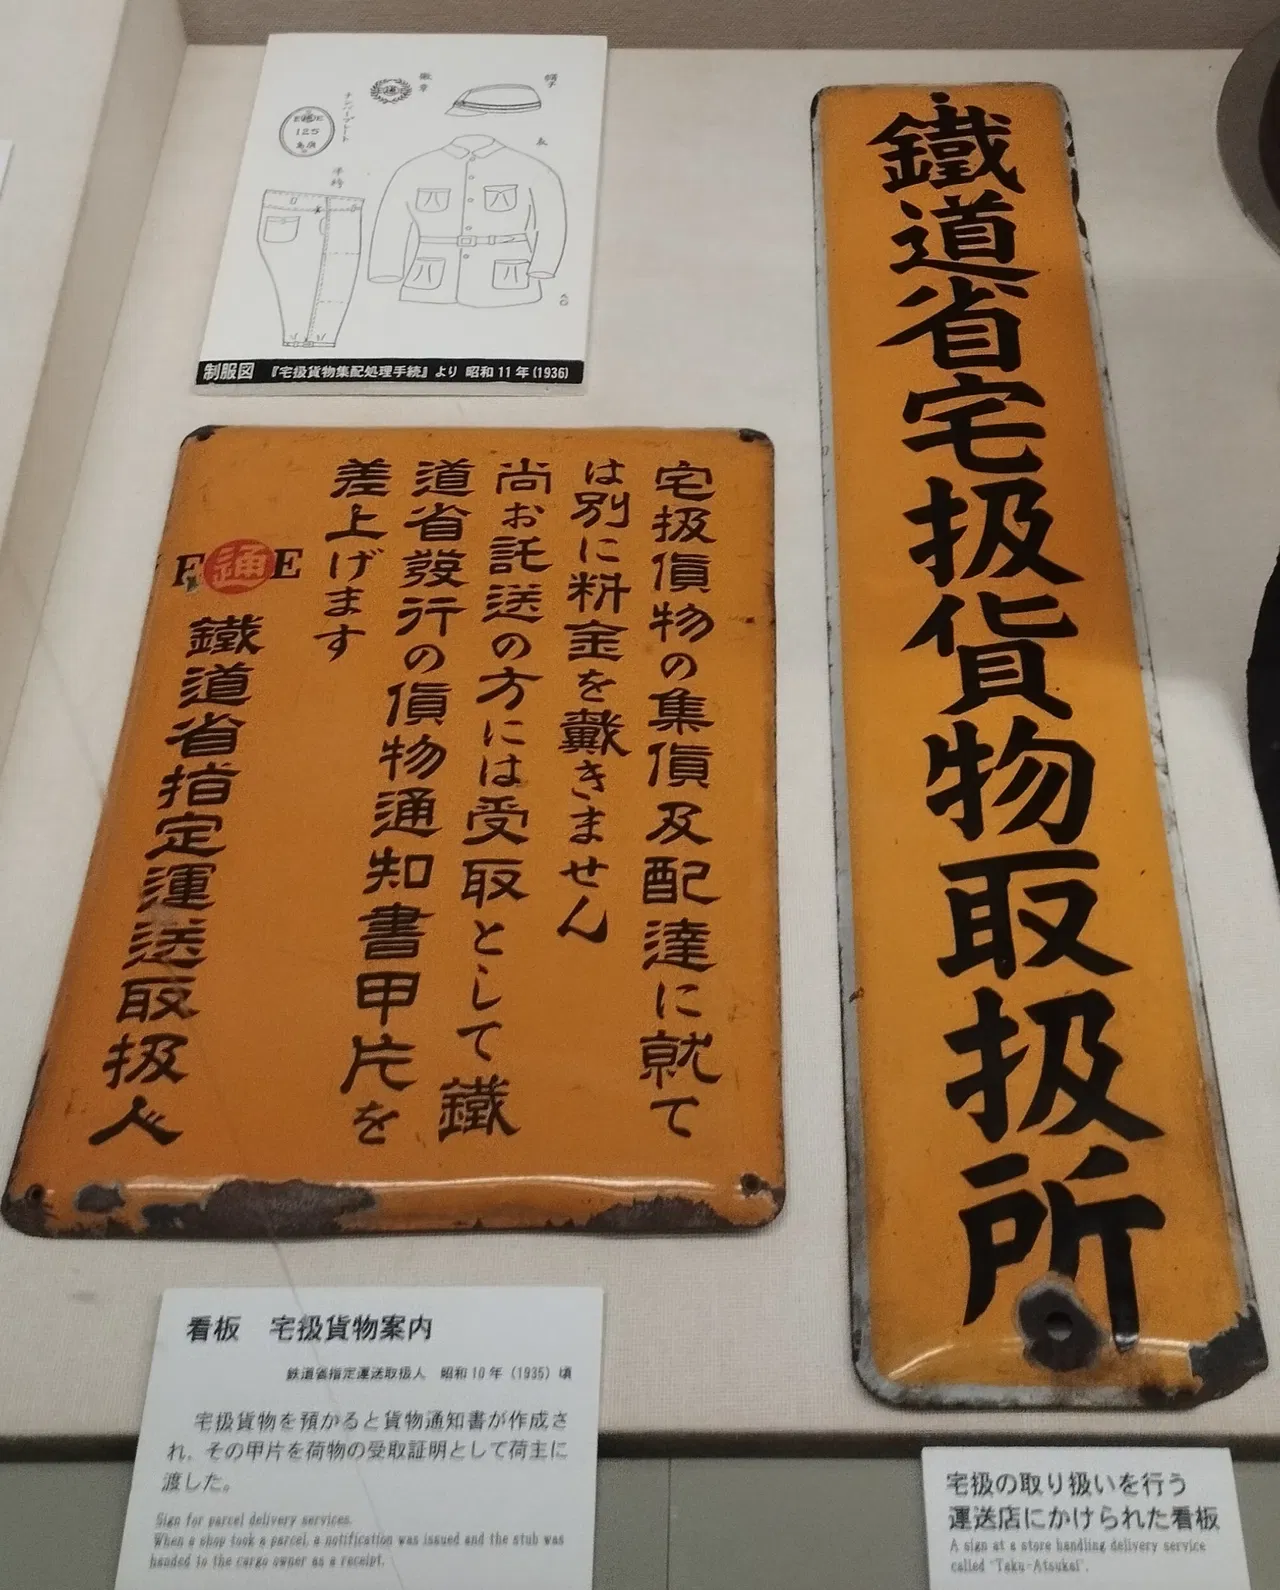 徽章
帽子
ナンバープレート
E通E
125
衣
半袴
制服図 『宅扱貨物集配処理手続』より 昭和11年(1936)
宅扱貨物の集貨及配達に就て
は別に料金を戴きません
尚お託送の方には受取として鐵
道省發行の貨物通知書甲片を
差上げます
F通E
鐵道省指定運送取扱人
鐵道省宅扱貨物取扱所
看板 宅扱貨物案内
鉄道省指定運送取扱人 昭和10年(1935)頃
宅扱貨物を預かると貨物通知書が作成さ
れ、その甲片を荷物の受取証明として荷主に
渡した。
Sign for parcel delivery services.
When a shop took a parcel, a notification was issued and the stub was
handed to the cargo owner as a receipt.
宅扱の取り扱いを行う
運送店にかけられた看板
A sign at a store handling delivery service
called "Taku-Atsukai".